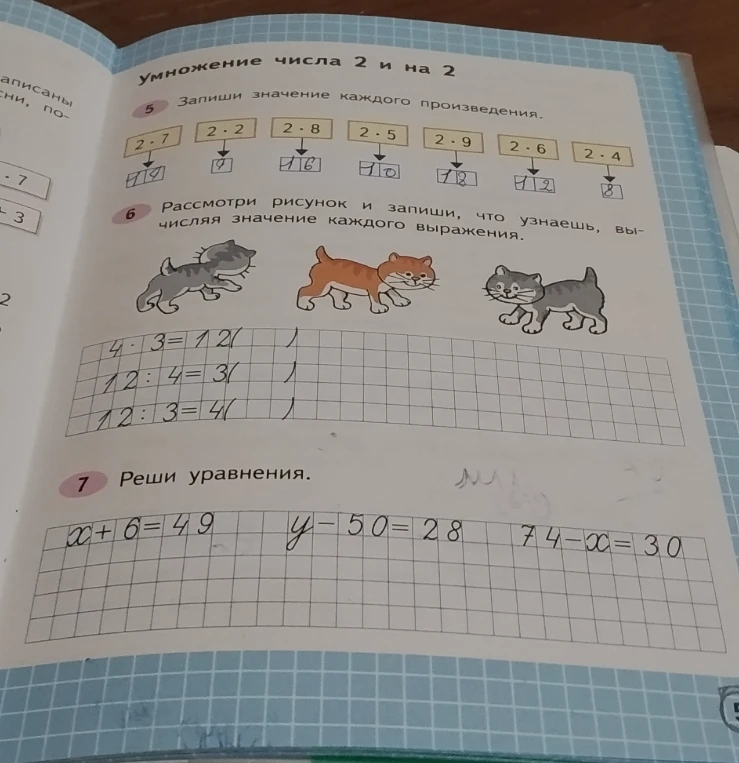 аписаны
сни, по-
· 7
- 3
2
Умножение числа 2 и на 2
5 Запиши значение каждого произведения.
2 · 7 2 · 2 2 · 8 2 · 5 2 · 9 2 · 6 2 · 4
14 4 16 10 18 12 8
6 Рассмотри рисунок и запиши, что узнаешь, вы-
числяя значение каждого выражения.
4 · 3 = 12( )
12 : 4 = 3( )
12 : 3 = 4( )
7 Реши уравнения.
x + 6 = 49 y − 50 = 28 74 − x = 30